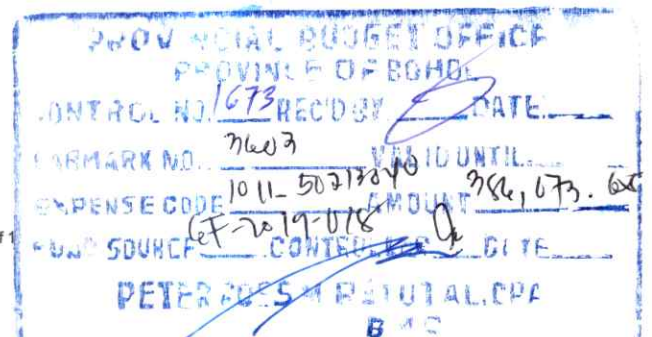 PROVINCIAL BUDGET OFFICE
PROVINCE OF BOHOL
CONTROL NO. 1673 REC'D BY DATE
EARMARK NO. 3603 VALID UNTIL
EXPENSE CODE 1011-50213040 AMOUNT 386,073.
FUND SOURCE GF-2019-018 DATE
PETER